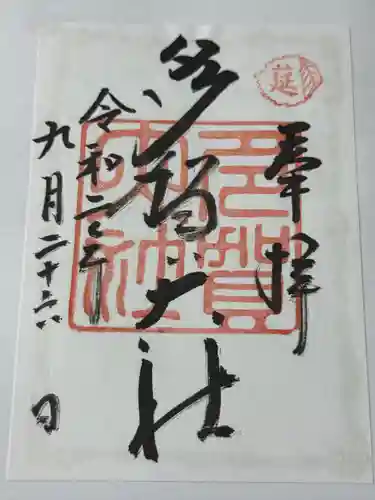 延
奉拝
多賀大社
多賀
大社
令和二年
九月二十六日